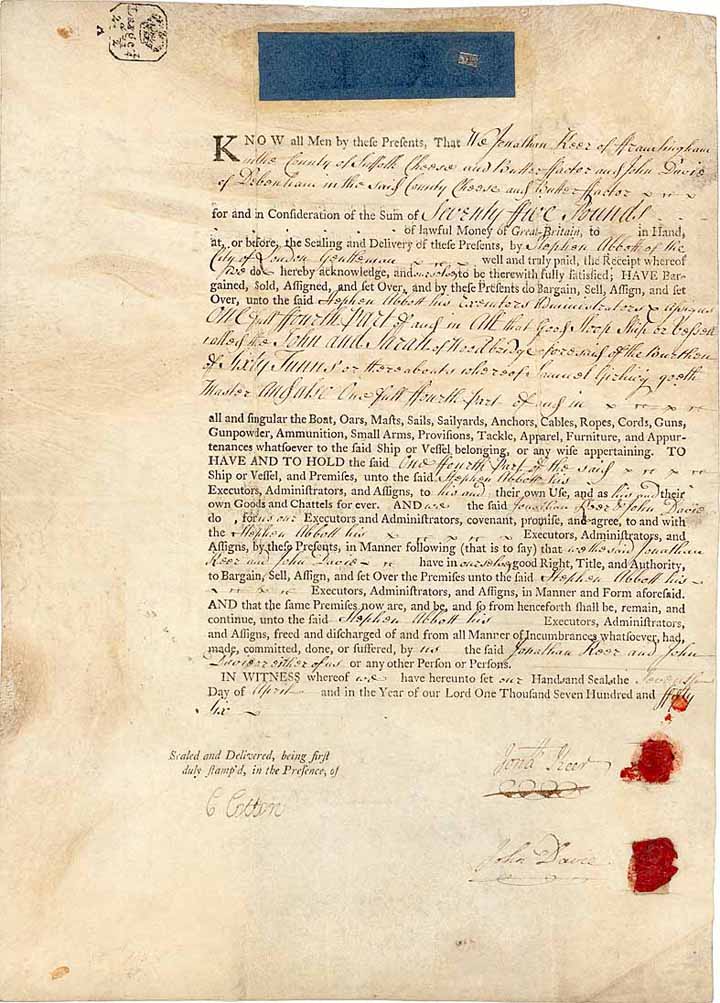 KNOW all Men by these Presents, That We Jonathan Keer of Framlingham
in the County of Suffolk Cheese and Butter ffactor and John Davie
of Debenham in the said County Cheese and Butter ffactor
for and in Consideration of the Sum of Seventy ffive Pounds
of lawful Money of Great-Britain, to in Hand,
at, or before, the Sealing and Delivery of these Presents, by Stephen Abbott of the
City of London Gentleman well and truly paid, the Receipt whereof
do hereby acknowledge, and to be therewith fully satisfied; HAVE Bar-
gained, Sold, Assigned, and set Over, and by these Presents do Bargain, Sell, Assign, and set
Over, unto the said Stephen Abbott his Executors Administrators & Assigns
One full ffourth Part of and in All that Good Sloop Ship or Vessell
called the John and Sarah of Woodbridge aforesaid of the Burthen
of Sixty Tunns or thereabouts whereof Samuel goeth
Master And also One full ffourth Part of and in
all and singular the Boat, Oars, Masts, Sails, Sailyards, Anchors, Cables, Ropes, Cords, Guns,
Gunpowder, Ammunition, Small Arms, Provisions, Tackle, Apparel, Furniture, and Appur-
tenances whatsoever to the said Ship or Vessel belonging, or any wise appertaining. TO
HAVE AND TO HOLD the said One ffourth Part of the said
Ship or Vessel, and Premises, unto the said Stephen Abbott his
Executors, Administrators, and Assigns, to his and their own Use, and as his and their
own Goods and Chattels for ever. AND we the said Jonathan Keer & John Davie
do , for us our Executors and Administrators, covenant, promise, and agree, to and with
the Stephen Abbott his Executors, Administrators, and
Assigns, by these Presents, in Manner following (that is to say) that we the said Jonathan
Keer and John Davie have in ourselves good Right, Title, and Authority,
to Bargain, Sell, Assign, and set Over the Premises unto the said Stephen Abbott his
Executors, Administrators, and Assigns, in Manner and Form aforesaid.
AND that the same Premises now are, and be, and so from henceforth shall be, remain, and
continue, unto the said Stephen Abbott his Executors, Administrators,
and Assigns, freed and discharged of and from all Manner of Incumbrances whatsoever, had,
made, committed, done, or suffered, by us the said Jonathan Keer and John
Davie or either of us or any other Person or Persons.
IN WITNESS whereof we have hereunto set our Hands and Seals the
Day of April and in the Year of our Lord One Thousand Seven Hundred and ffifty
Six
Sealed and Delivered, being first
duly stamp'd, in the Presence, of
Jonath Keer
John Davie